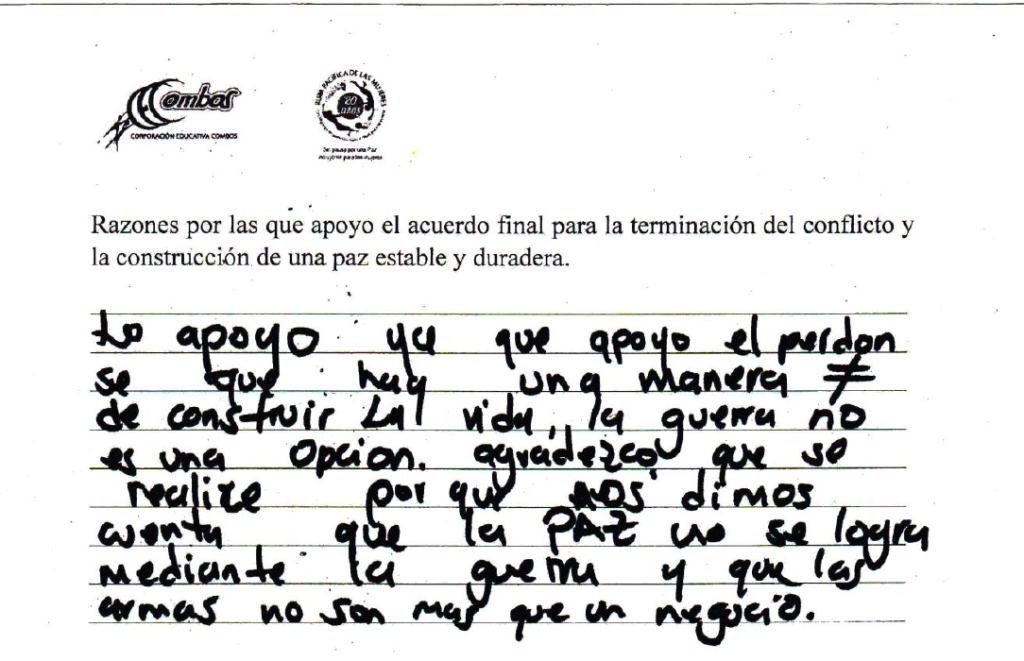 Combos
CORPORACIÓN EDUCATIVA COMBOS
RUTA PACÍFICA DE LAS MUJERES
20
AÑOS
Razones por las que apoyo el acuerdo final para la terminación del conflicto y
la construcción de una paz estable y duradera.
Lo apoyo ya que apoyo el perdon
se que hay una manera ≠
de construir La vida, la guerra no
es una opcion. agradezco que se
realize por que nos dimos
cuenta que la PAZ no se logra
mediante la guerra y que las
armas no son mas que un negocio.